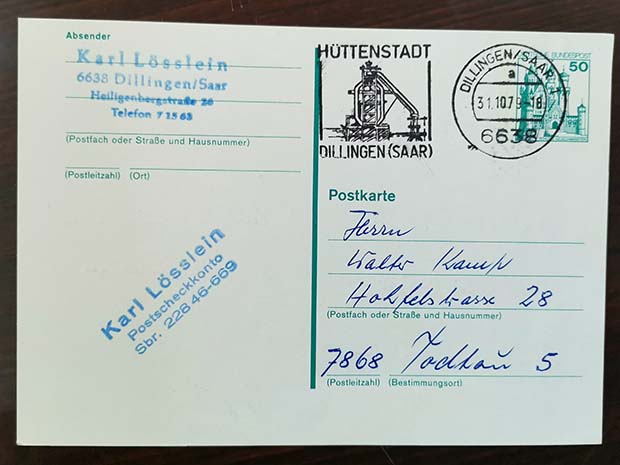 Absender
Karl Lösslein
6638 Dillingen/Saar
Heiligenbergstraße 20
Telefon 7 15 63
(Postfach oder Straße und Hausnummer)
(Postleitzahl) (Ort)
Karl Lösslein
Postscheckkonto
Sbr. 228 46-669
HÜTTENSTADT
DILLINGEN (SAAR)
DILLINGEN/SAAR 1
a
31.10.79-18
6638
BUNDESPOST
50
Postkarte
Herrn
Walter Kamp
(Postfach oder Straße und Hausnummer)
28
7868 Todtnau 5
(Postleitzahl) (Bestimmungsort)